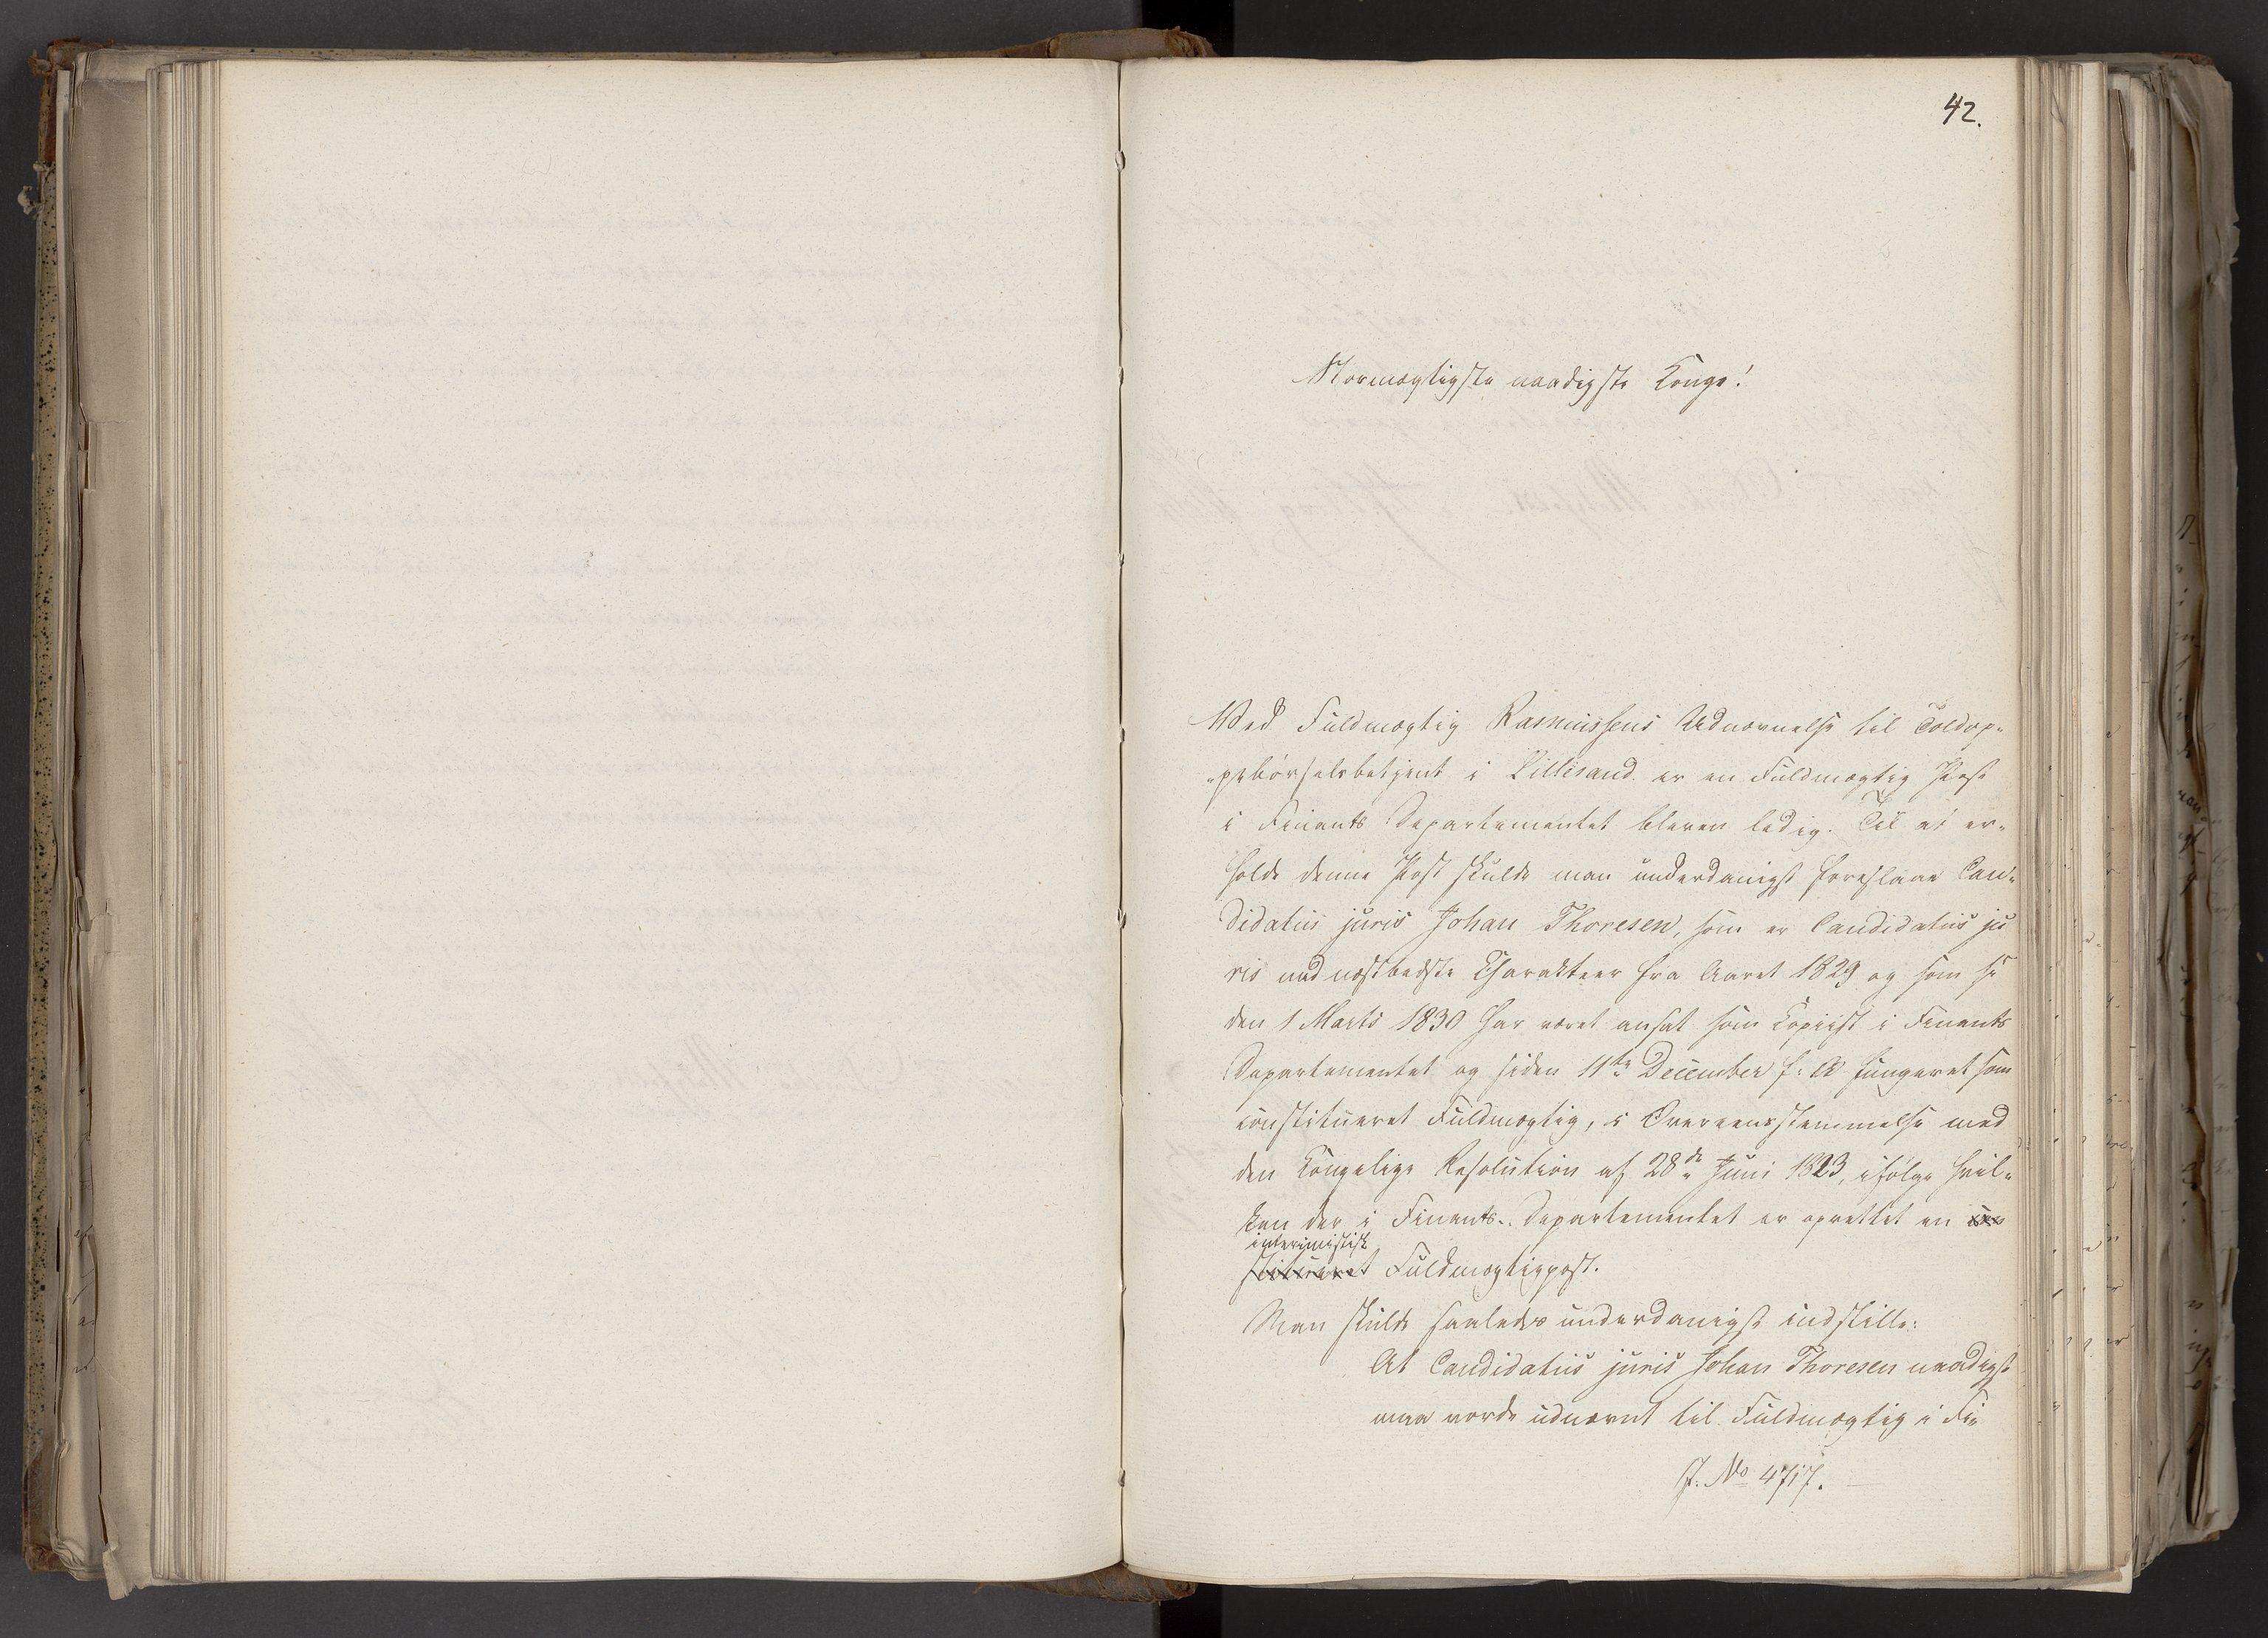 42.
Stormægtigste naadigste Konge!
Ved Fuldmægtig Rasmussens Udnævnelse til Toldop„
„pebørselsbetjent i Lillesand er en Fuldmægtig Post
i Finants Departementet bleven ledig. Til at er„
holde denne Post skulde man underdanigst foreslaae Can„
didatus juris Johan Thoresen, som er Candidatus ju
ris med næstbedste Charakteer fra Aaret 1829 og som si
den 1 Marts 1830 har været ansat som Copiist i Finants
Departementet og siden 11te December f: A fungeret som
constitueret Fuldmægtig, i Overeensstemmelse med
den Kongelige Resolution af 28de Juni 1823, ifølge hvil„
ken der i Finants-Departementet er oprettet en con
interimistisk
stitueret Fuldmægtigpost.
Man skulde saaledes underdanigst indstille:
At Candidatus juris Johan Thoresen naadigst
maa vorde udnævnt til Fuldmægtig i Fi„
J. No 4717.